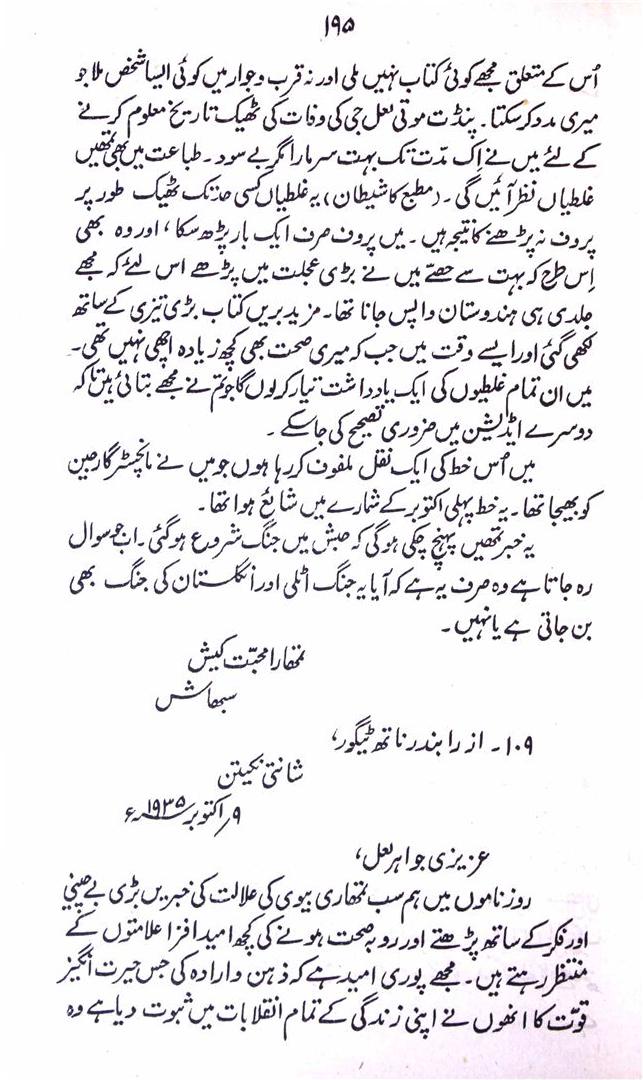 ۱۹۵
اُس کے متعلق مجھے کوئی کتاب نہیں ملی اور نہ قرب و جوار میں کوئی ایسا شخص ملا جو
میری مدد کر سکتا۔ پنڈت موتی لعل جی کی وفات کی ٹھیک تاریخ معلوم کرنے
کے لئے میں نے اِک مدّت تک بہت سر مارا مگر بے سود۔ طباعت میں بھی تمھیں
غلطیاں نظر آئیں گی۔ (مطبع کا شیطان) یہ غلطیاں کسی حد تک ٹھیک طور پر
پروف نہ پڑھنے کا نتیجہ ہیں۔ میں پروف صرف ایک بار پڑھ سکا، اور وہ بھی
اِس طرح کہ بہت سے حصّے میں نے بڑی عجلت میں پڑھے اس لئے کہ مجھے
جلدی ہی ہندوستان واپس جانا تھا۔ مزید بریں کتاب بڑی تیزی کے ساتھ
لکھی گئی اور ایسے وقت میں جب کہ میری صحت بھی کچھ زیادہ اچھی نہیں تھی۔
میں ان تمام غلطیوں کی ایک یادداشت تیار کرلوں گا جو تم نے مجھے بتائی ہیں تاکہ
دوسرے ایڈیشن میں ضروری تصحیح کی جا سکے۔
میں اُس خط کی ایک نقل ملفوف کر رہا ہوں جو میں نے مانچسٹر گارجین
کو بھیجا تھا۔ یہ خط پہلی اکتوبر کے شمارے میں شایع ہوا تھا۔
یہ خبر تمھیں پہنچ چکی ہوگی کہ حبش میں جنگ شروع ہوگئی۔ اب جو سوال
رہ جاتا ہے وہ صرف یہ ہے کہ آیا یہ جنگ اٹلی اور انگلستان کی جنگ بھی
بن جاتی ہے یا نہیں۔
تمھارا محبّت کیش
سبھاش
۱۰۹۔ از رابندر ناتھ ٹیگور،
شانتی نکیتن
۹؍ اکتوبر ۱۹۳۵ء
عزیزی جواہر لعل،
روزناموں میں ہم سب تمھاری بیوی کی علالت کی خبریں بڑی بے چینی
اور فکر کے ساتھ پڑھتے اور رو بہ صحت ہونے کی کچھ امید افزا علامتوں کے
منتظر رہتے ہیں۔ مجھے پوری امید ہے کہ ذہن و ارادہ کی جس حیرت انگیز
قوّت کا انھوں نے اپنی زندگی کے تمام انقلابات میں ثبوت دیا ہے وہ